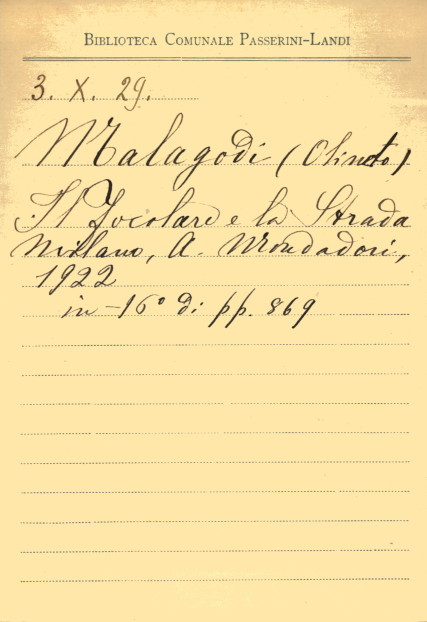 BIBLIOTECA COMUNALE PASSERINI-LANDI
3. X. 29.
Malagodi (Olindo)
Il Focolare e la Strada
Milano, A. Mondadori,
1922
in-16° di pp. 869